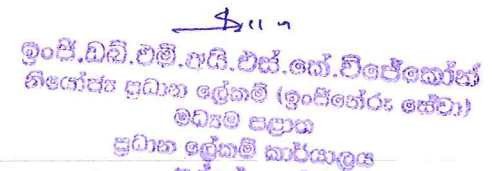 ඉංජි.ඩබ්.එම්.අයි.එස්.කේ.විජේකෝන්
නියෝජ්‍ය ප්‍රධාන ලේකම් (ඉංජිනේරු සේවා)
මධ්‍යම පළාත
ප්‍රධාන ලේකම් කාර්යාලය